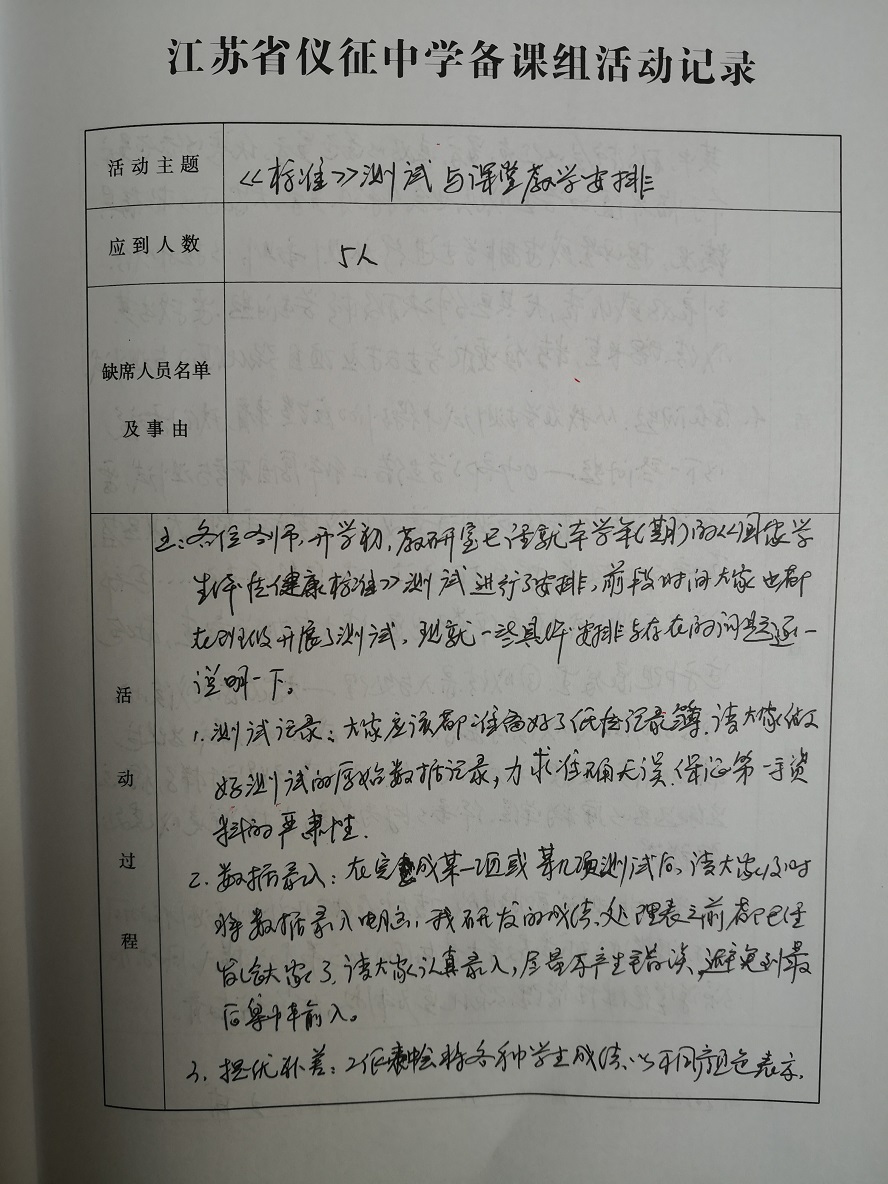 江苏省仪征中学备课组活动记录
活动主题
《标准》测试与课堂教学安排
应到人数
5人
缺席人员名单
及事由
活动过程
各位老师,开学初,教研室已经就本学年(期)的《国家学
生体质健康标准》测试进行了安排,前段时间大家也都
在班级开展了测试,现就一些具体安排与存在的问题逐一
说明一下。
1.测试记录:大家应该都准备好了体检记录簿,请大家做
好测试的原始数据记录,力求准确无误,保证第一手资
料的严肃性.
2.数据录入:在完成某一项或某几项测试后,请大家及时
将数据录入电脑,我研发的成绩处理表之前都已经
发给大家了,请大家认真录入,尽量不产生错误,避免到最
后集中输入。
3.提优补差:工作表中会将各种学生成绩以不同颜色表示,